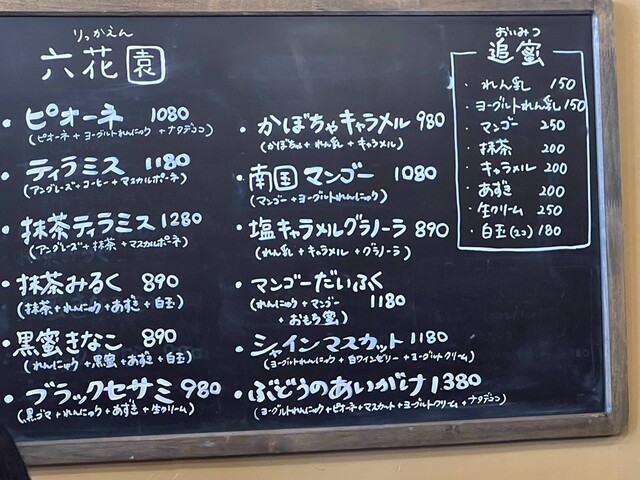 りっかえん
六花園
・ピオーネ 1080
(ピオーネ+ヨーグルトれんにゅう+ナタデココ)
・ティラミス 1180
(アングレーズ+コーヒー+マスカルポーネ)
・抹茶ティラミス 1280
(アングレーズ+抹茶+マスカルポーネ)
・抹茶みるく 890
(抹茶+れんにゅう+あずき+白玉)
・黒蜜きなこ 890
(れんにゅう+黒蜜+あずき+白玉)
・ブラックセサミ 980
(黒ゴマ+れんにゅう+あずき+生クリーム)
・かぼちゃキャラメル 980
(かぼちゃ+れん乳+キャラメル)
・南国マンゴー 1080
(マンゴー+ヨーグルトれんにゅう)
・塩キャラメルグラノーラ 890
(れん乳+キャラメル+グラノーラ)
・マンゴーだいふく
(れんにゅう+マンゴー 1180
+おもち蜜)
・シャインマスカット 1180
(ヨーグルトれんにゅう+白ワインゼリー+ヨーグルトクリーム)
・ぶどうのあいがけ 1380
(ヨーグルトれんにゅう+ピオーネ+マスカット+ヨーグルトクリーム+ナタデココ)
おいみつ
追蜜
・れん乳 150
・ヨーグルトれん乳 150
・マンゴー 250
・抹茶 200
・キャラメル 200
・あずき 200
・生クリーム 250
・白玉(2コ) 180